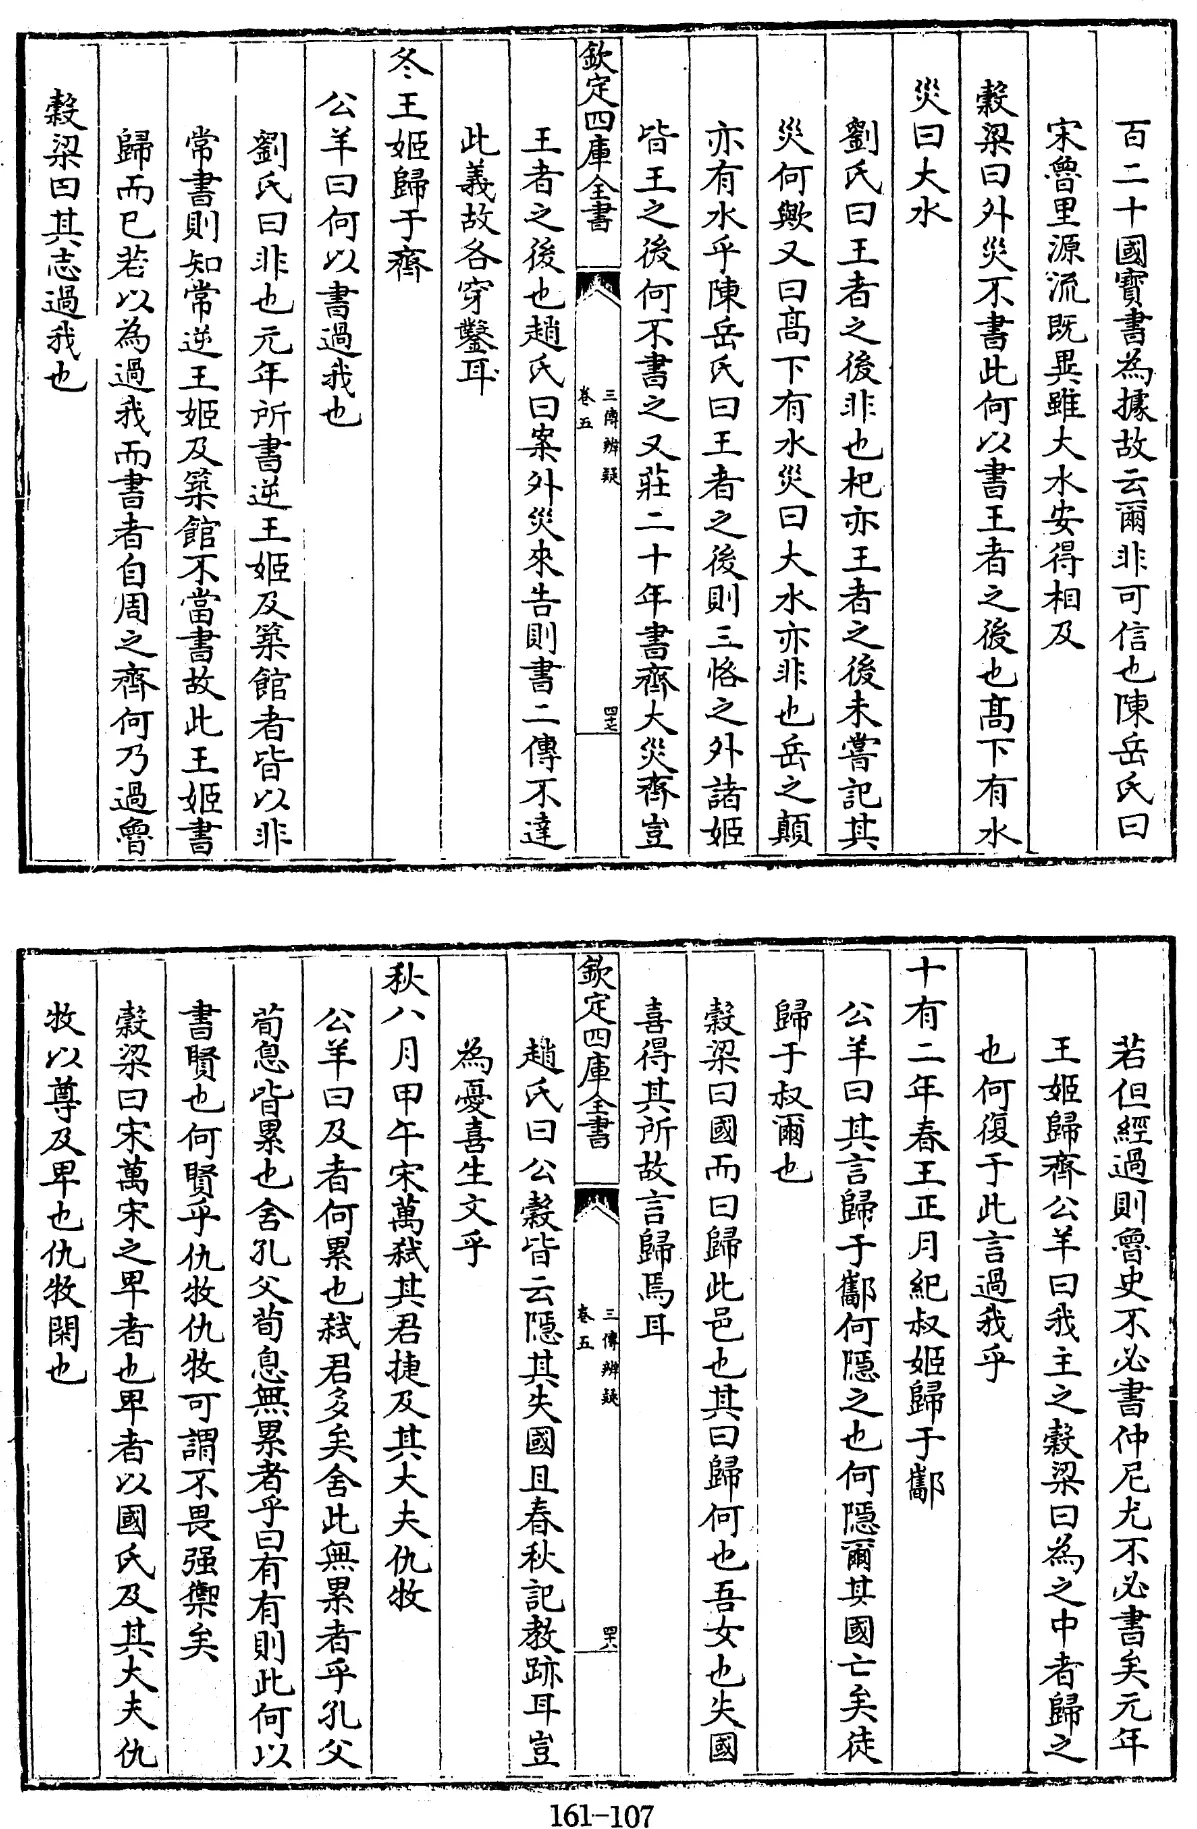 百二十國寳書為據故云爾非可信也陳岳氏曰
宋魯里源流既異雖大水安得相及
穀梁曰外災不書此何以書王者之後也髙下有水
災曰大水
劉氏曰王者之後非也杞亦王者之後未嘗記其
災何歟又曰髙下有水災曰大水亦非也岳之顛
亦有水乎陳岳氏曰王者之後則三恪之外諸姬
皆王之後何不書之又莊二十年書齊大災齊豈
欽定四庫全書
三傳辨疑
卷五
四十七
王者之後也趙氏曰案外災來告則書二傳不達
此義故各穿鑿耳
冬王姬歸于齊
公羊曰何以書過我也
劉氏曰非也元年所書逆王姬及築館者皆以非
常書則知常逆王姬及築館不當書故此王姬書
歸而已若以為過我而書者自周之齊何乃過魯
穀梁曰其志過我也
若但經過則魯史不必書仲尼尤不必書矣元年
王姬歸齊公羊曰我主之穀梁曰為之中者歸之
也何復于此言過我乎
十有二年春王正月紀叔姬歸于酅
公羊曰其言歸于酅何隱之也何隱爾其國亡矣徒
歸于叔爾也
穀梁曰國而曰歸此邑也其曰歸何也吾女也失國
喜得其所故言歸焉耳
欽定四庫全書
三傳辨疑
卷五
四十八
趙氏曰公穀皆云隱其失國且春秋記教跡耳豈
為憂喜生文乎
秋八月甲午宋萬弒其君捷及其大夫仇牧
公羊曰及者何累也弒君多矣舍此無累者乎孔父
荀息皆累也舍孔父荀息無累者乎曰有有則此何以
書賢也何賢乎仇牧仇牧可謂不畏强禦矣
穀梁曰宋萬宋之卑者也卑者以國氏及其大夫仇
牧以尊及卑也仇牧閑也
161-107